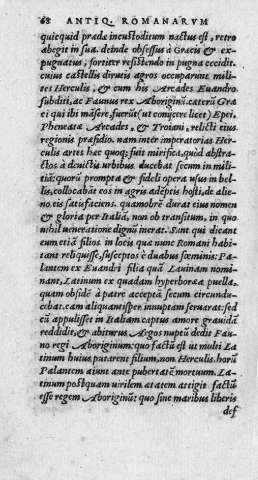 68 ANTIQ. ROMANARVM
quicquid prædæ incustoditum nactus est, retro
abegit in sua. deinde obsessus à Græcis & ex-
pugnatus, fortiter resistendo in pugna cecidit.
cuius castellis dirutis agros occuparunt mili-
tes Herculis, & cum his Arcades Euandro
subditi, ac Faunus rex Aboriginū. caterū Græ
ci qui ibi māsere, fuerūt (ut conijcere licet) Epei,
Pheneatæ Arcades, & Troiani, relicti eius
regionis præsidio. nam inter imperatorias Her-
culis artes hæc quoq; fuit mirifica, quòd abstra-
ctos à deuictis urbibus ducebat secum in mili-
tiā: quorū prompta & fideli opera usus in bel-
lis, collocabāt eos in agris adēptis hosti, de alie-
no eis satisfaciens. quamobrē durat eius nomen
& gloria per Italiā, non ob transitum, in quo
nihil ueneratione dignū inerat. Sunt qui dicant
eum etiā filios in locis quæ nunc Romani habi-
tant reliquisse, susceptos è duabus fœminis: Pa-
lantem ex Euandri filia quā Lauinam nomi-
nant, Latinum ex quadam hyperborea puella,
quam obsidē à patre acceptā secum circundu-
cebat. eam aliquantisper innuptam seruarat: sed
cū appulisset in Italiam captus amore grauidā
reddidit, & abiturus Argos nuptū dedit Fau-
no regi Aboriginum: quo factū est ut multi La
tinum huius putarent filium, non Herculis. horū
Palantem aiunt ante pubertatē mortuum. La-
tinum postquam uirilem ætatem attigit factū
esse regem Aboriginū: quo sine maribus liberis
def